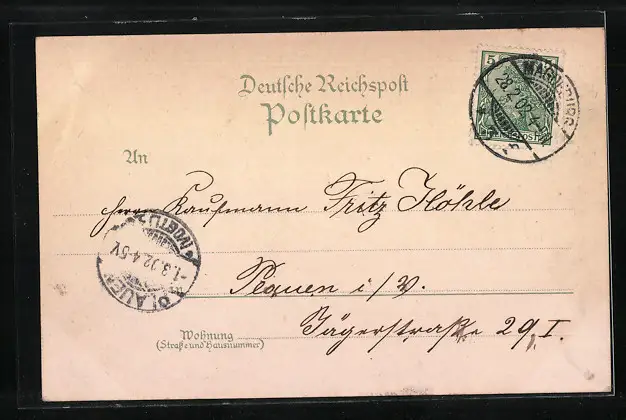 Deutsche Reichspost
Postkarte
5
MAGDEBURG
28.2.02.4-
An
Herrn Kaufmann Fritz Höhle
PLAUEN
(VOGTL.)
-1.3.02.4-5V.
Plauen i/V.
Jägerstraße 29, I.
Wohnung
(Straße und Hausnummer)